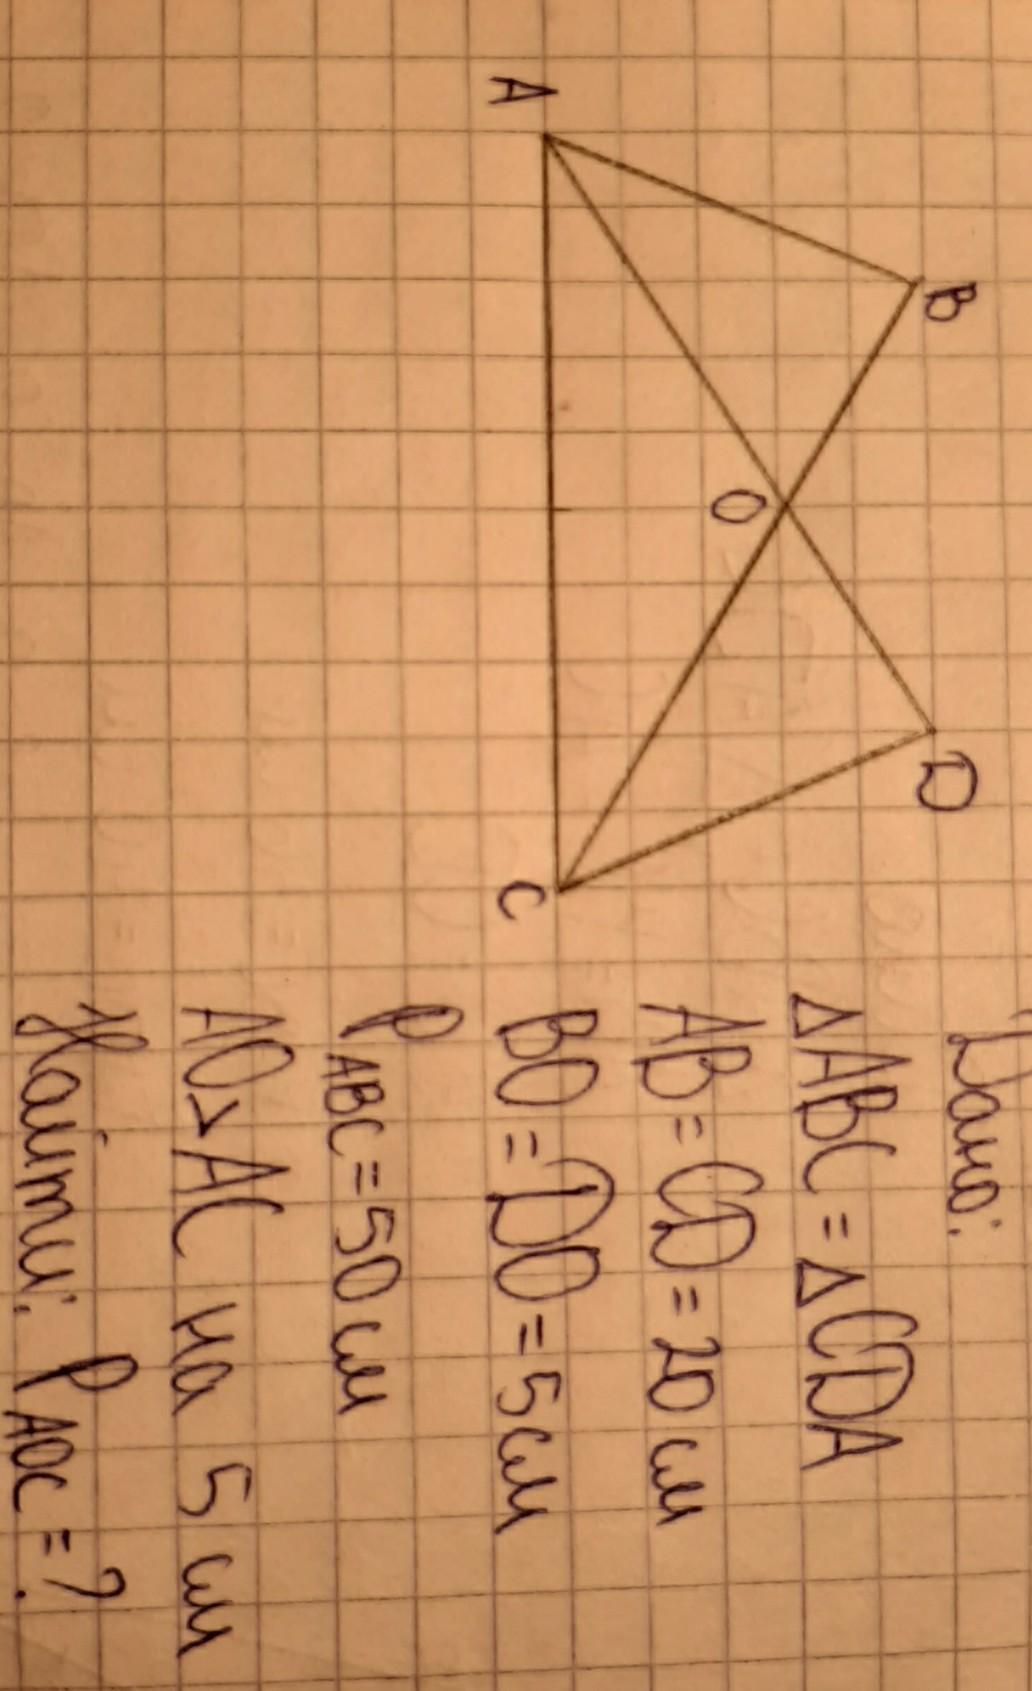 B
D
O
A
C
Дано:
△ABC = △CDA
AB = CD = 20 см
BO = DO = 5 см
P ABC = 50 см
AO > AC на 5 см
Найти: P AOC = ?